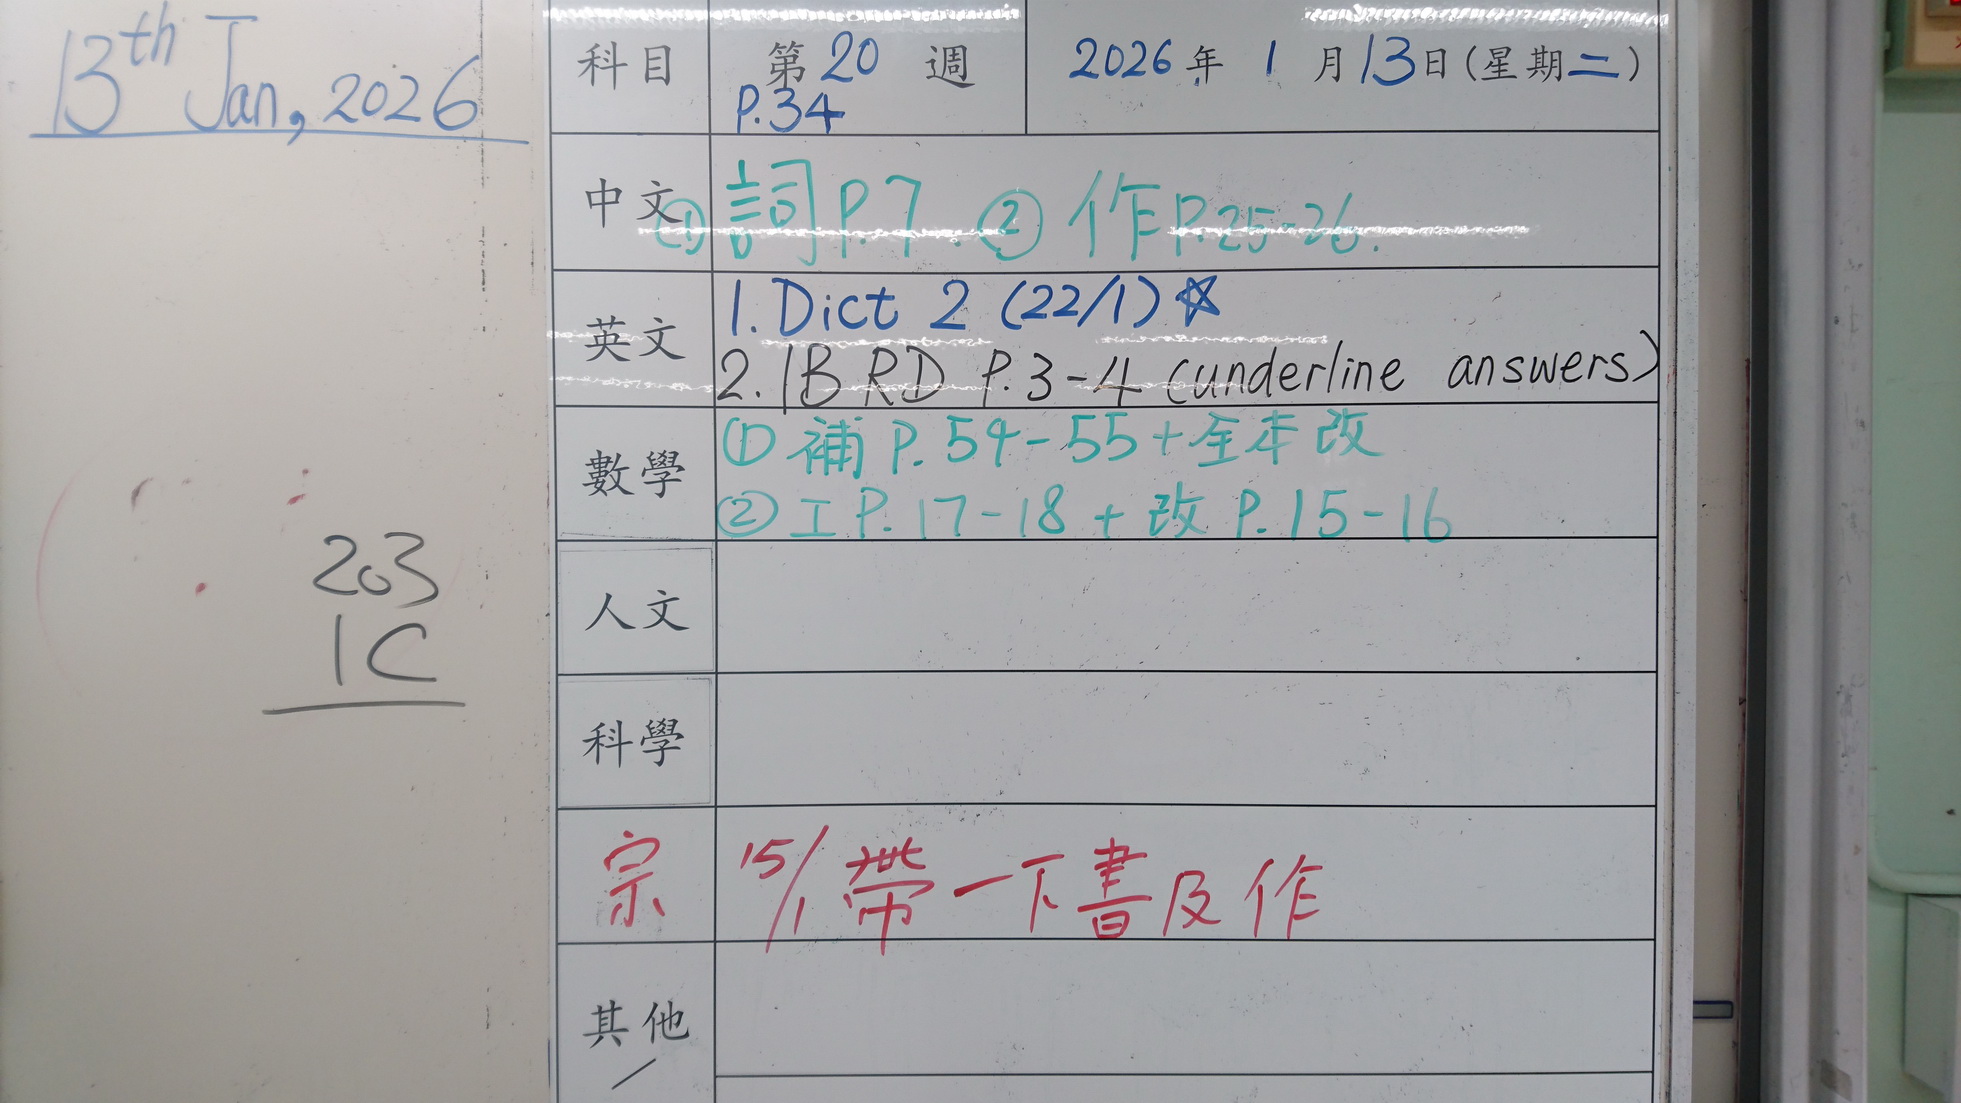 13th Jan, 2026
203
1C
科目 第20週 2026年1月13日(星期二)
P.34
中文 ① 詞P.7. ② 作P.25-26.
英文 1. Dict 2 (22/1) ☆
2. 1B RD P.3-4 (underline answers)
數學 ① 補 P.54-55+全本改
② 工P.17-18+改P.15-16
人文
科學
宗 15/1 帶一下書及作
其他